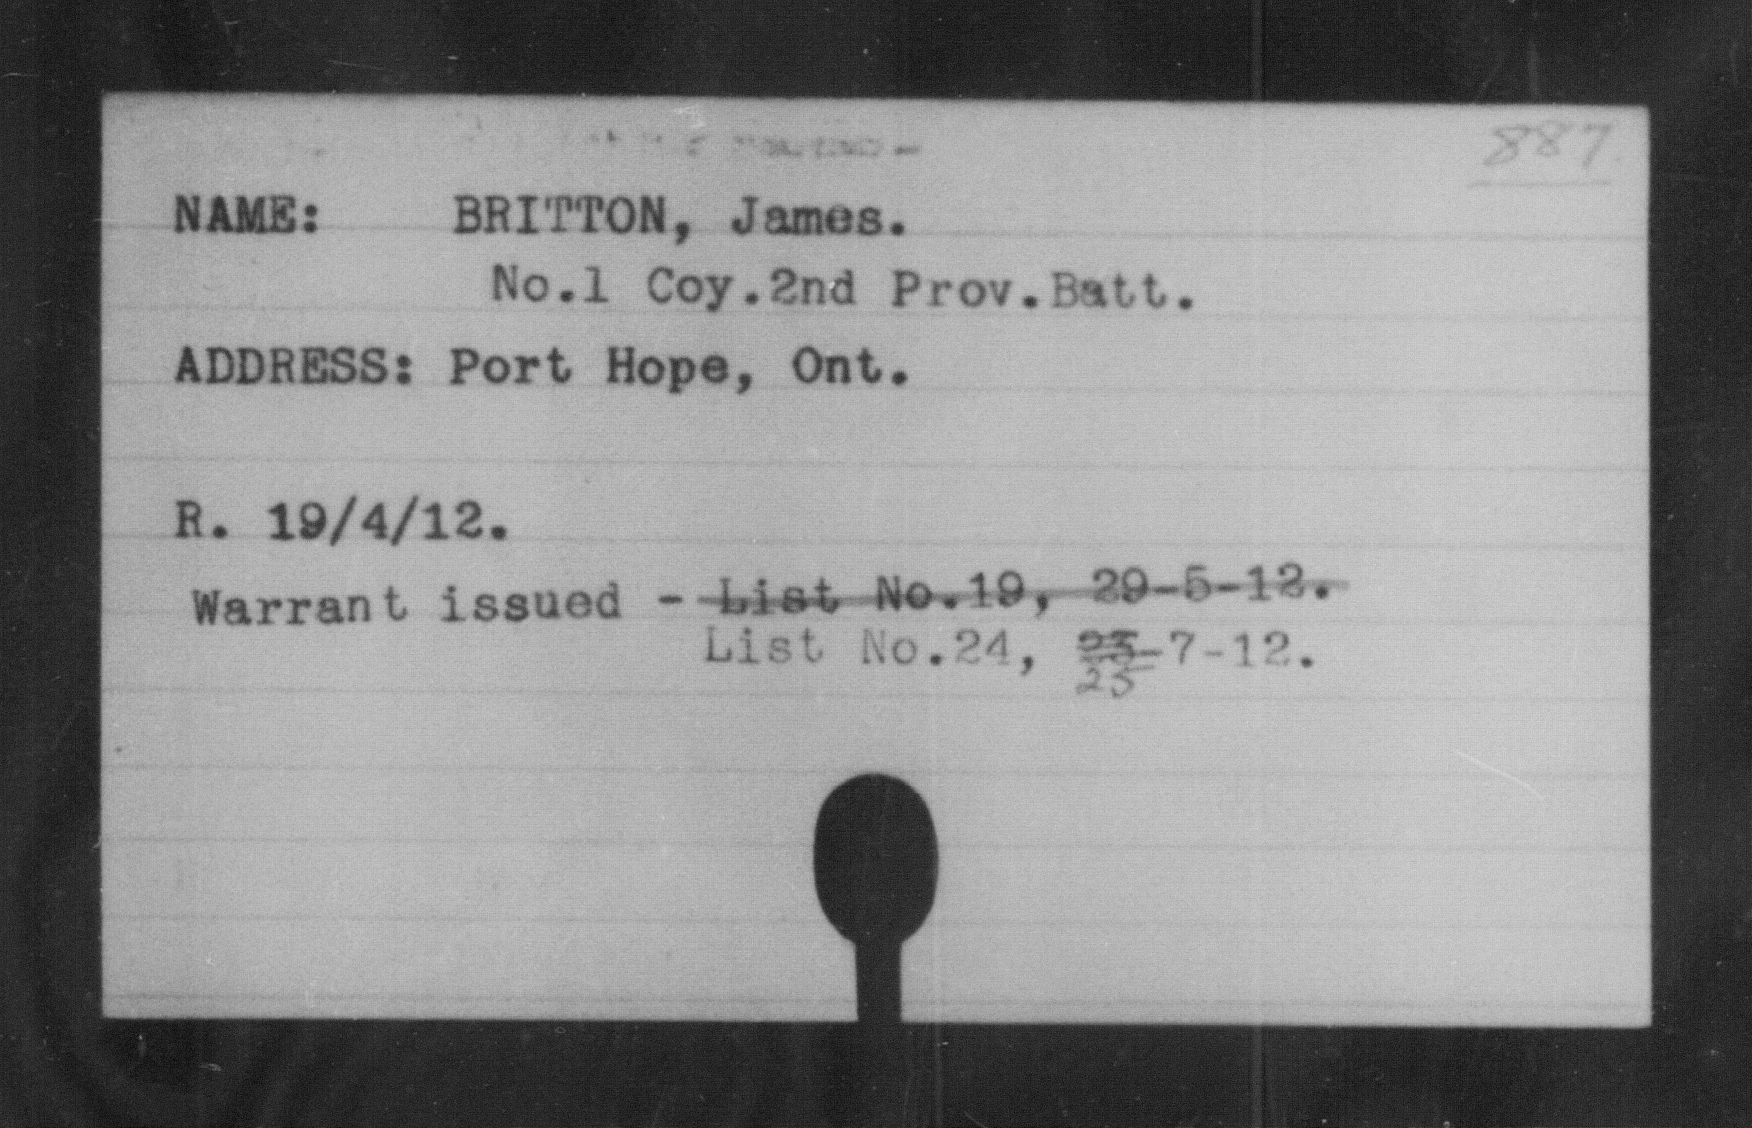 887
NAME: BRITTON, James.
No.1 Coy.2nd Prov.Batt.
ADDRESS: Port Hope, Ont.
R. 19/4/12.
Warrant issued - List No.19, 29-5-12.
List No.24, 23-7-12.
23